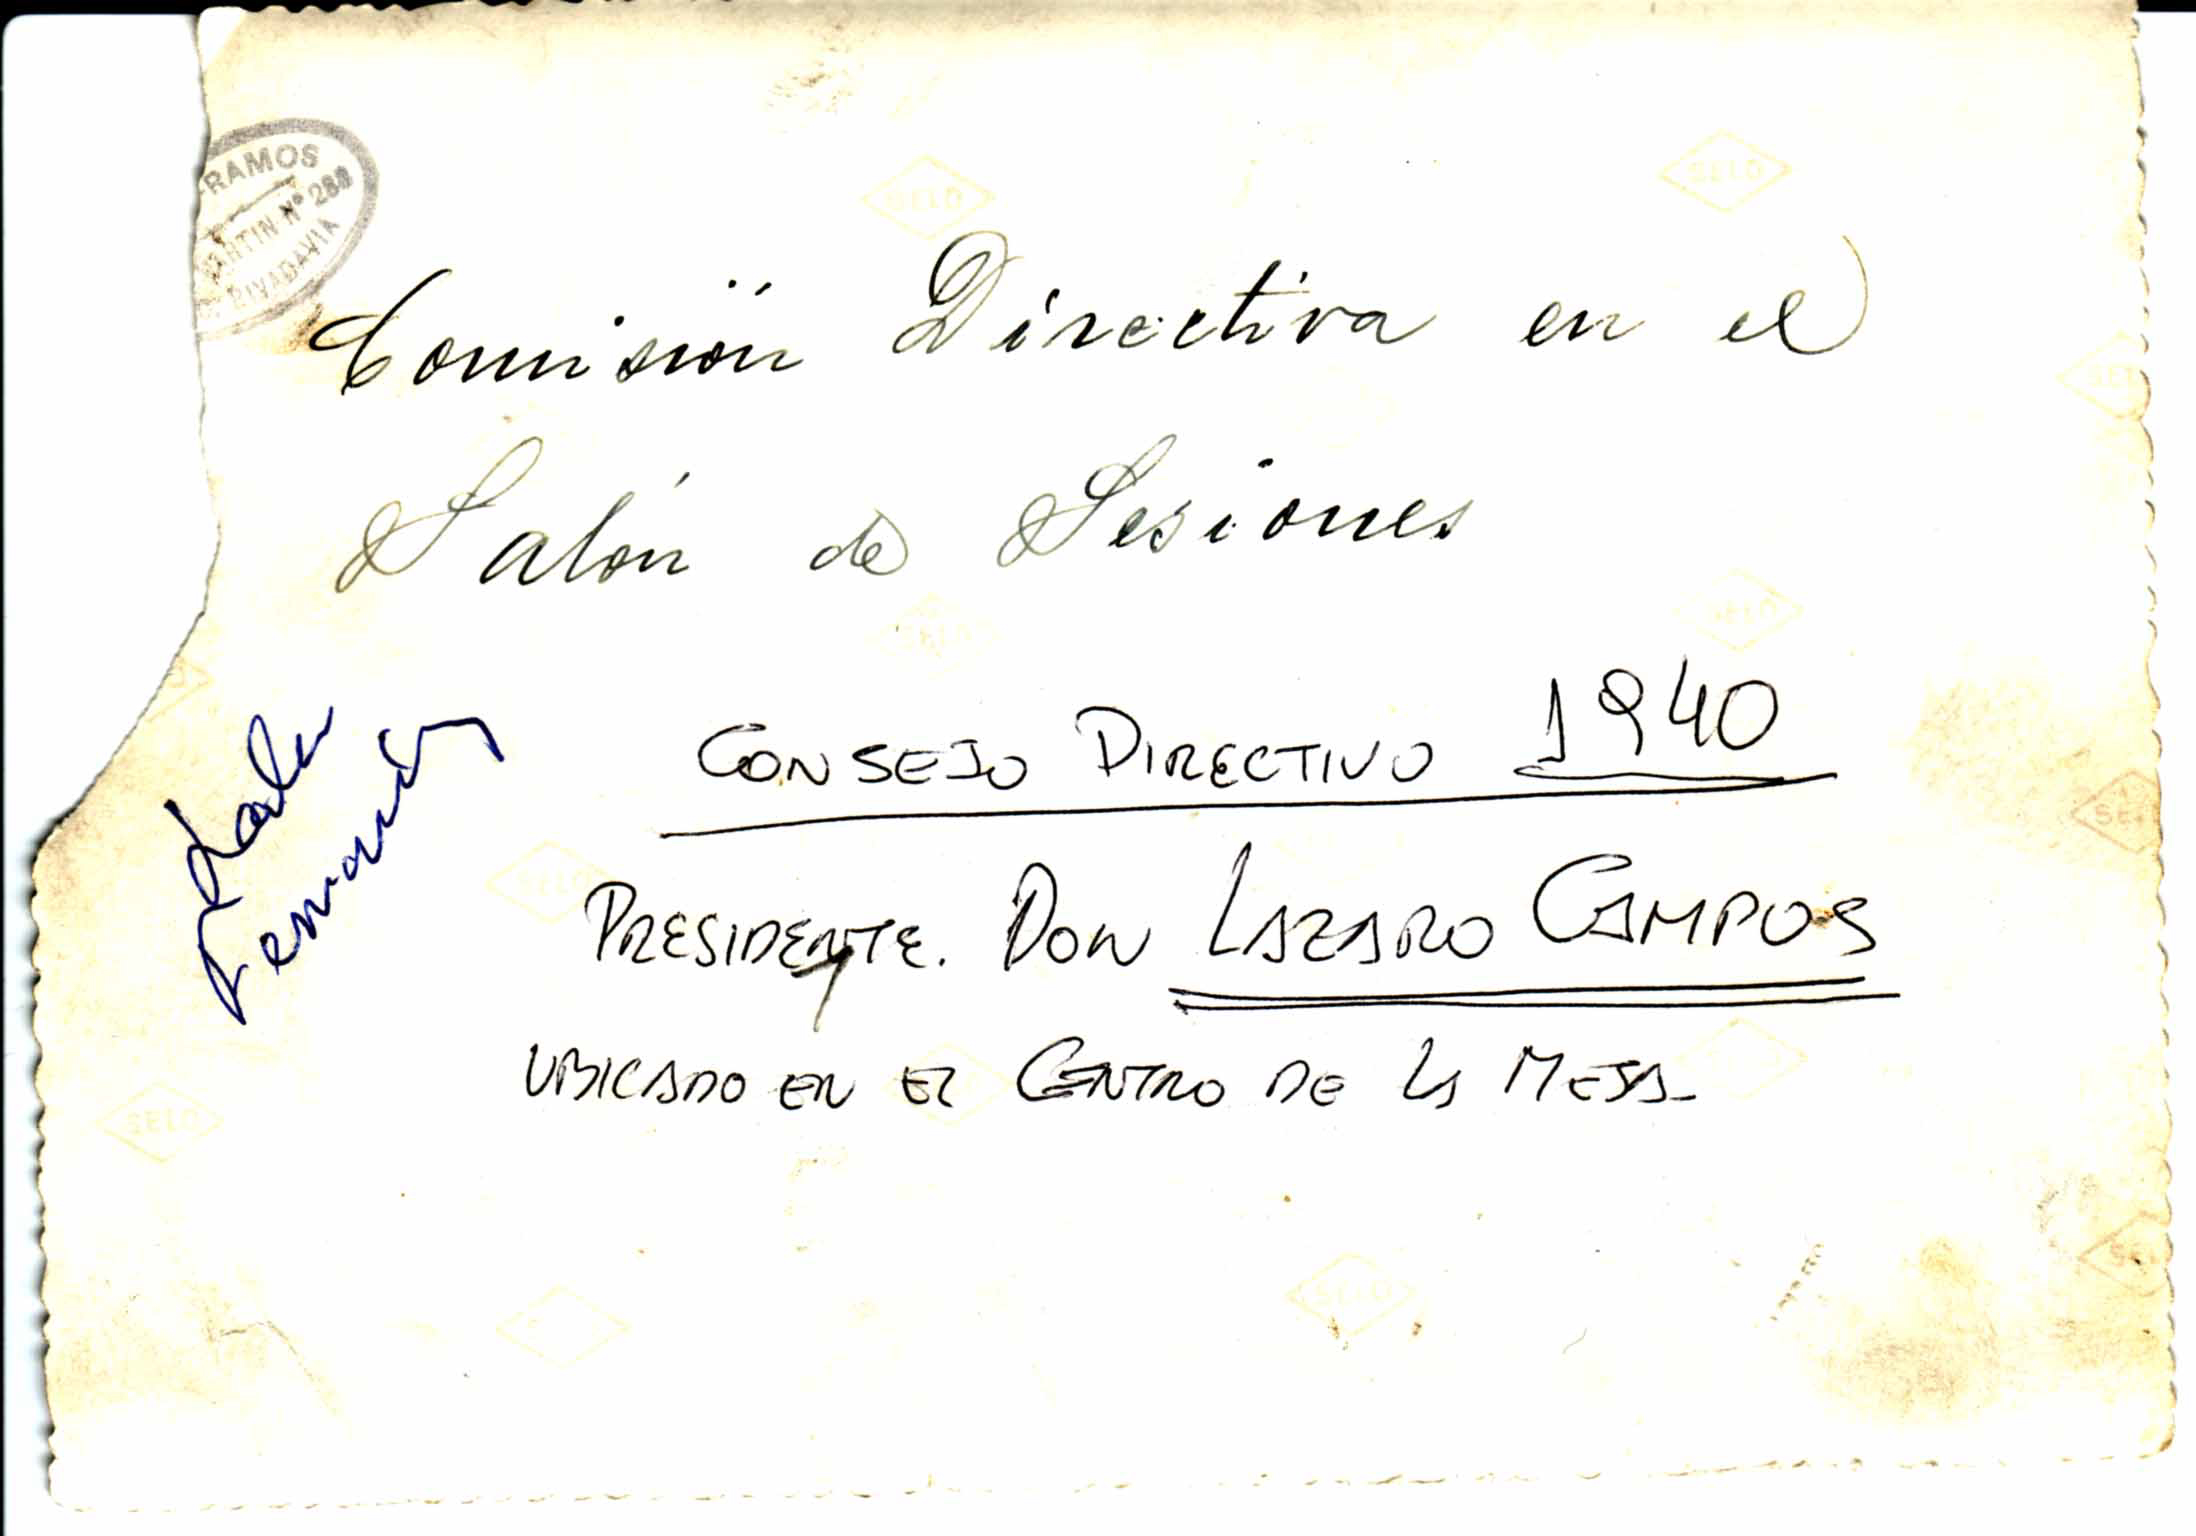 RAMOS
ARTIN Nº 288
RIVADAVIA
Comisión Directiva en el
Salón de Sesiones
CONSEJO DIRECTIVO 1940
PRESIDENTE. DON LAZARO CAMPOS
UBICADO EN EL CENTRO DE LA MESA-
SELO
SELO
SEL
SELO
SELO
SE
SELO
SELO
SELO
SE